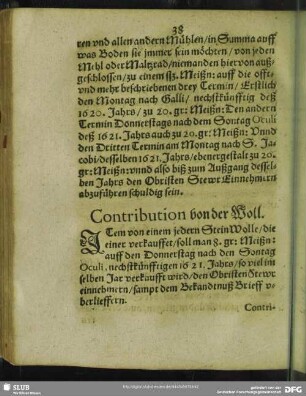 38
ren vnd allen andern Mühlen/ in Summa auff
was Boden sie jmmer sein möchten/ von jeden
Mehl oder Maltzrad/ niemanden hiervon auß-
geschlossen/ zu einem ßz. Meißn: auff die offt-
vnd mehr beschriebenen drey Termin/ Erstlich
den Montag nach Galli/ nechstkünfftig deß
1620. Jahrs/ zu 20. gr: Meißn: Den andern
Termin Donnerstags nach dem Sontag Oculi
deß 1621. Jahrs auch zu 20. gr: Meißn: Vnnd
den Dritten Termin am Montag nach S. Ja-
cobi/ desselben 1621. Jahrs/ ebenergestalt zu 20.
gr: Meißn: vnnd also biß zum Außgang dessel-
ben Jahrs den Obristen Stewr Einnehmern
abzuführen schuldig sein.
Contribution von der Woll.
ITem von einem jedern Stein Wolle/ die
einer verkauffet/ soll man 8. gr: Meißn:
auff den Donnerstag nach den Sontag
Oculi, nechstkünfftigen 1621. Jahrs/ so viel im
selben Jar verkaufft wird/ den Obristen Stewr
einnehmern/ sampt dem Bekandtnuß Brieff v-
berlieffern.
Contri-
SLUB
Wir führen Wissen.
DFG